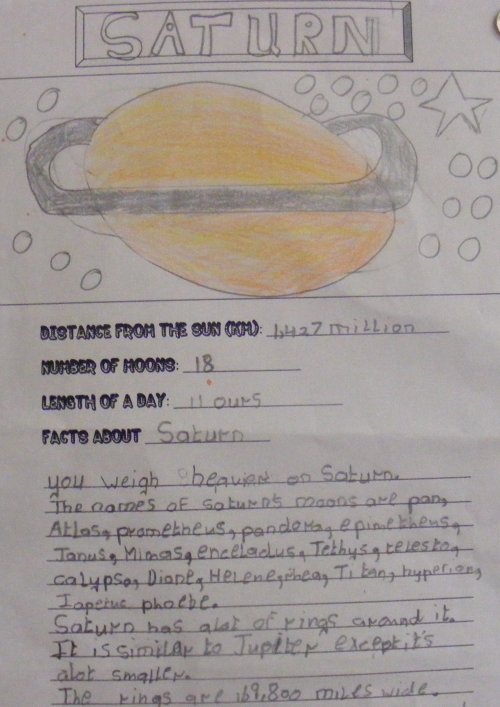 SATURN
DISTANCE FROM THE SUN (KM): 1,427 million
NUMBER OF MOONS: 18
LENGTH OF A DAY: 11 ours
FACTS ABOUT Saturn
you weigh heavier on Saturn.
The names of saturns moons are pan,
Atlas, prometheus, pandora, epimetheus,
Janus, Mimas, enceladus, Tethys, telesto,
calypso, Dione, Helene, rhea, Titan, hyperion,
Iapetus phoebe.
Saturn has alot of rings around it.
It is similar to Jupiter except it's
alot smaller.
The rings are 169,800 miles wide.